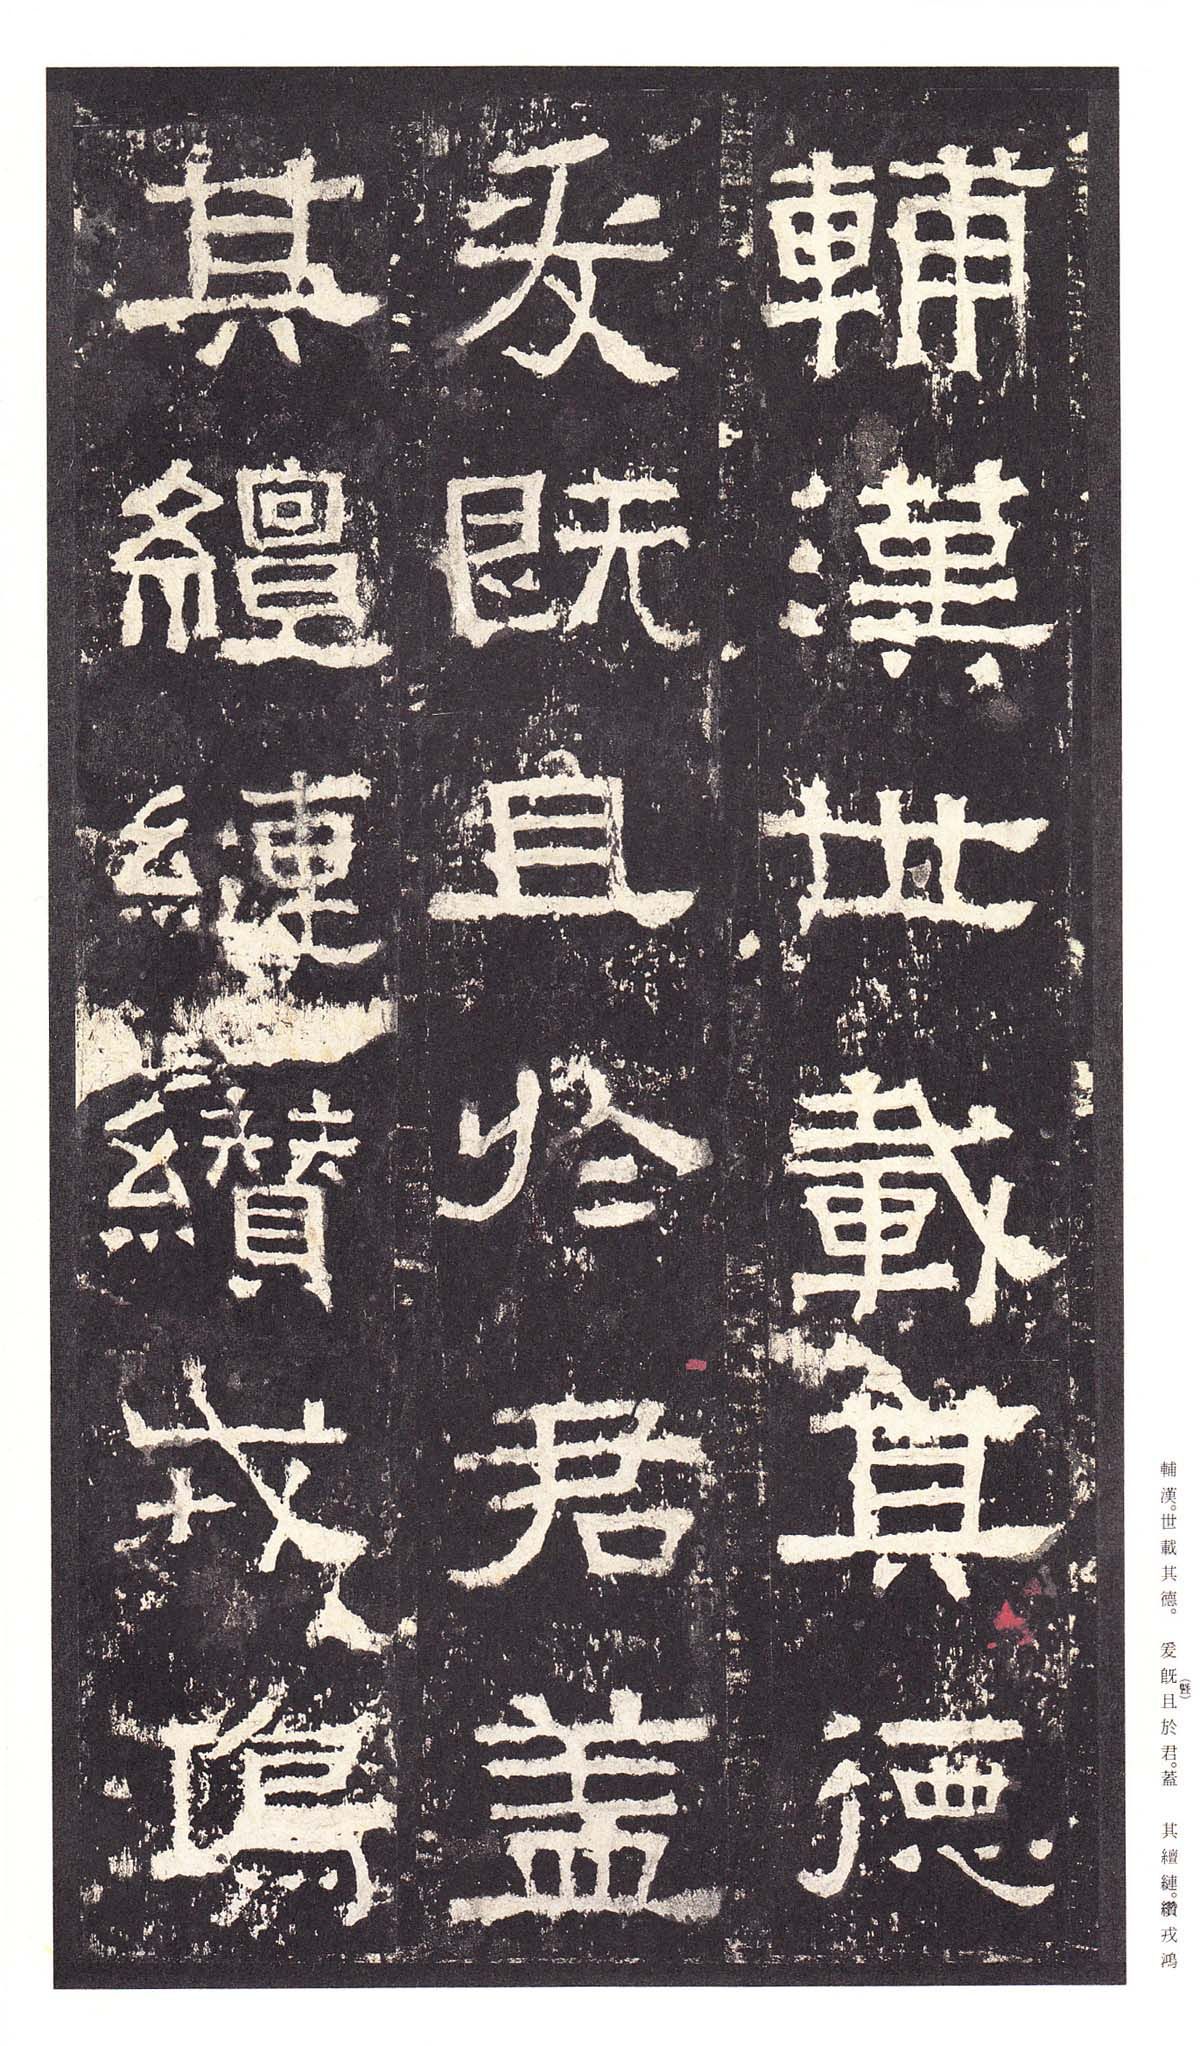 輔漢世載其德
爰既且於君蓋
其繵縺纘戎鴻
輔漢。世載其德。 爰既(曁)且於君。蓋 其繵縺。纘戎鴻